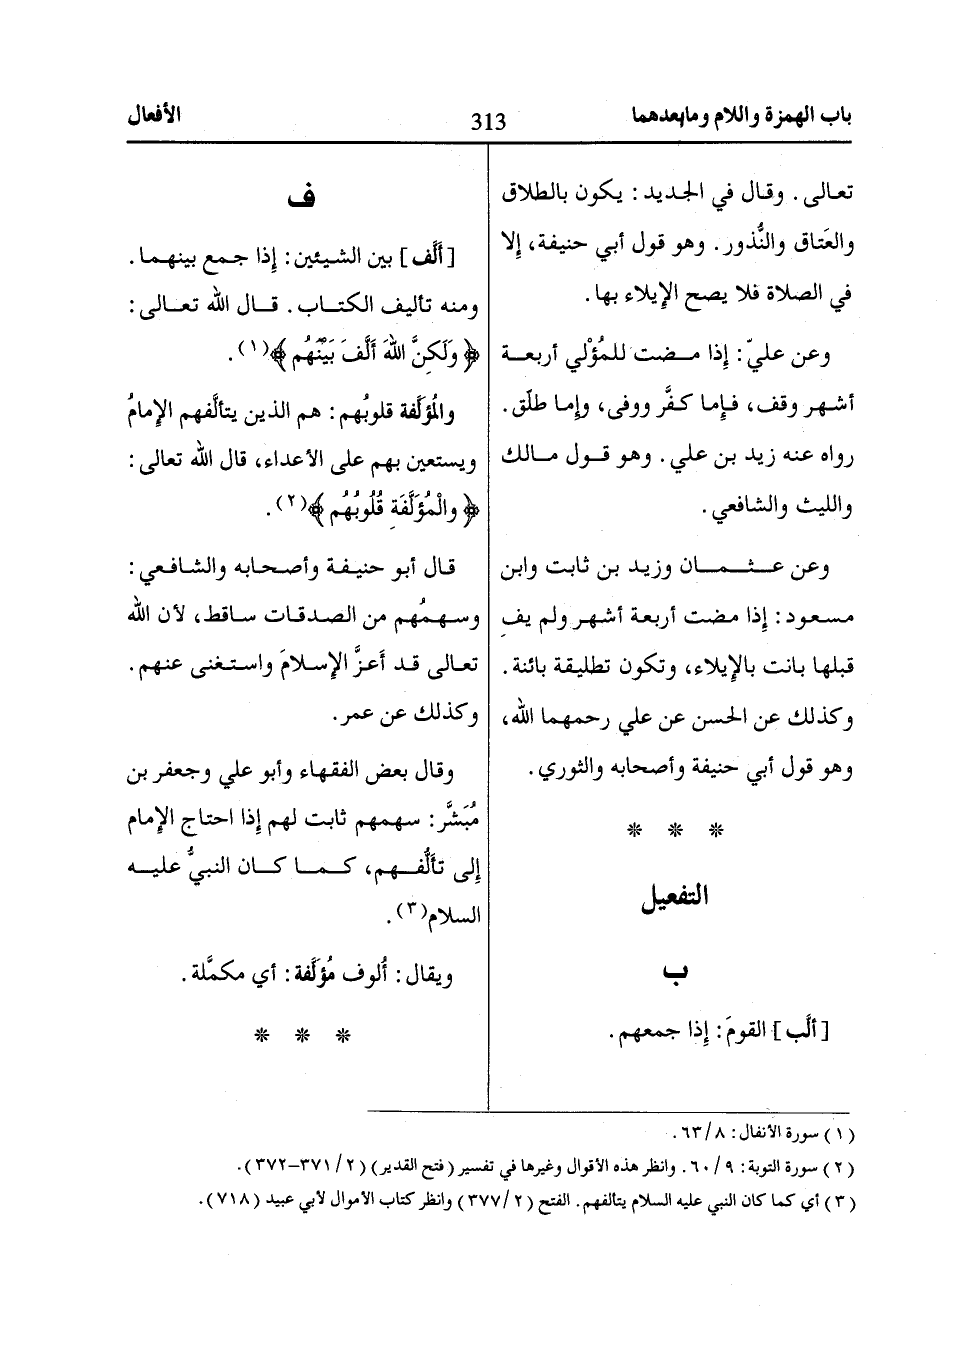 باب الهمزة واللام ومابعدهما
313
الأفعال
تعالى. وقال في الجديد: يكون بالطلاق
والعَتاق والنُّذور. وهو قول أبي حنيفة، إِلا
في الصلاة فلا يصح الإِيلاء بها.
وعن عليّ: إِذا مضت للمُؤْلي أربعة
أشهر وقف، فإما كفَّر ووفى، وإما طلّق.
رواه عنه زيد بن علي. وهو قول مالك
والليث والشافعي.
وعن عثمان وزيد بن ثابت وابن
مسعود: إِذا مضت أربعة أشهر ولم يفِ
قبلها بانت بالإِيلاء، وتكون تطليقة بائنة.
وكذلك عن الحسن عن علي رحمهما الله،
وهو قول أبي حنيفة وأصحابه والثوري.
* * *
التفعيل
ب
[ألَّب] القومَ: إِذا جمعهم.
ف
[ألَّف] بين الشيئين: إِذا جمع بينهما.
ومنه تأليف الكتاب. قال الله تعالى:
﴿وَلَكِنَّ اللهَ أَلَّفَ بَيْنَهُم﴾(١).
والمُؤلَّفة قلوبُهم: هم الذين يتألَّفهم الإِمامُ
ويستعين بهم على الأعداء، قال الله تعالى:
﴿والْمُؤَلَّفَةِ قُلُوبُهُم﴾(٢).
قال أبو حنيفة وأصحابه والشافعي:
وسهمُهم من الصدقات ساقط، لأن الله
تعالى قد أعزَّ الإِسلامَ واستغنى عنهم.
وكذلك عن عمر.
وقال بعض الفقهاء وأبو علي وجعفر بن
مُبَشَّر: سهمهم ثابت لهم إِذا احتاج الإِمام
إِلى تألُّفهم، كما كان النبيُّ عليه
السلام(٣).
ويقال: أُلوف مُؤَلَّفة: أي مكمَّلة.
* * *
(١) سورة الأنفال: ٦٣/٨.
(٢) سورة التوبة: ٦٠/٩. وانظر هذه الأقوال وغيرها في تفسير (فتح القدير) (٣٧١/٢–٣٧٢).
(٣) أي كما كان النبي عليه السلام يتألفهم. الفتح (٣٧٧/٢) وانظر كتاب الأموال لأبي عبيد (٧١٨).